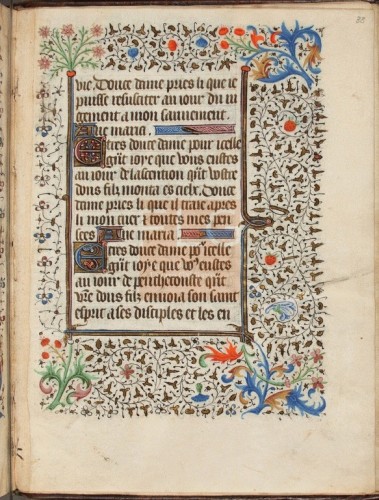 80
vie. Doulce dame pries li que ie
puisse resusciter au iour du iu
gement a mon sauuement.
Aue maria.
Tres doulce dame pour icelle
gñt ioye que vous eustes
au iour de lascention qñt vostre
douls filz monta es cielx. Doulce
dame pries li que il traie apres
li mon cuer & toutes mes pen
sees. Aue maria.
Tres doulce dame po² icelle
gñt ioye que vo⁹ eustes
au iour de penthecouste qñt
vr̃e douls filz enuoia son saint
esprit a ses disciples et les en